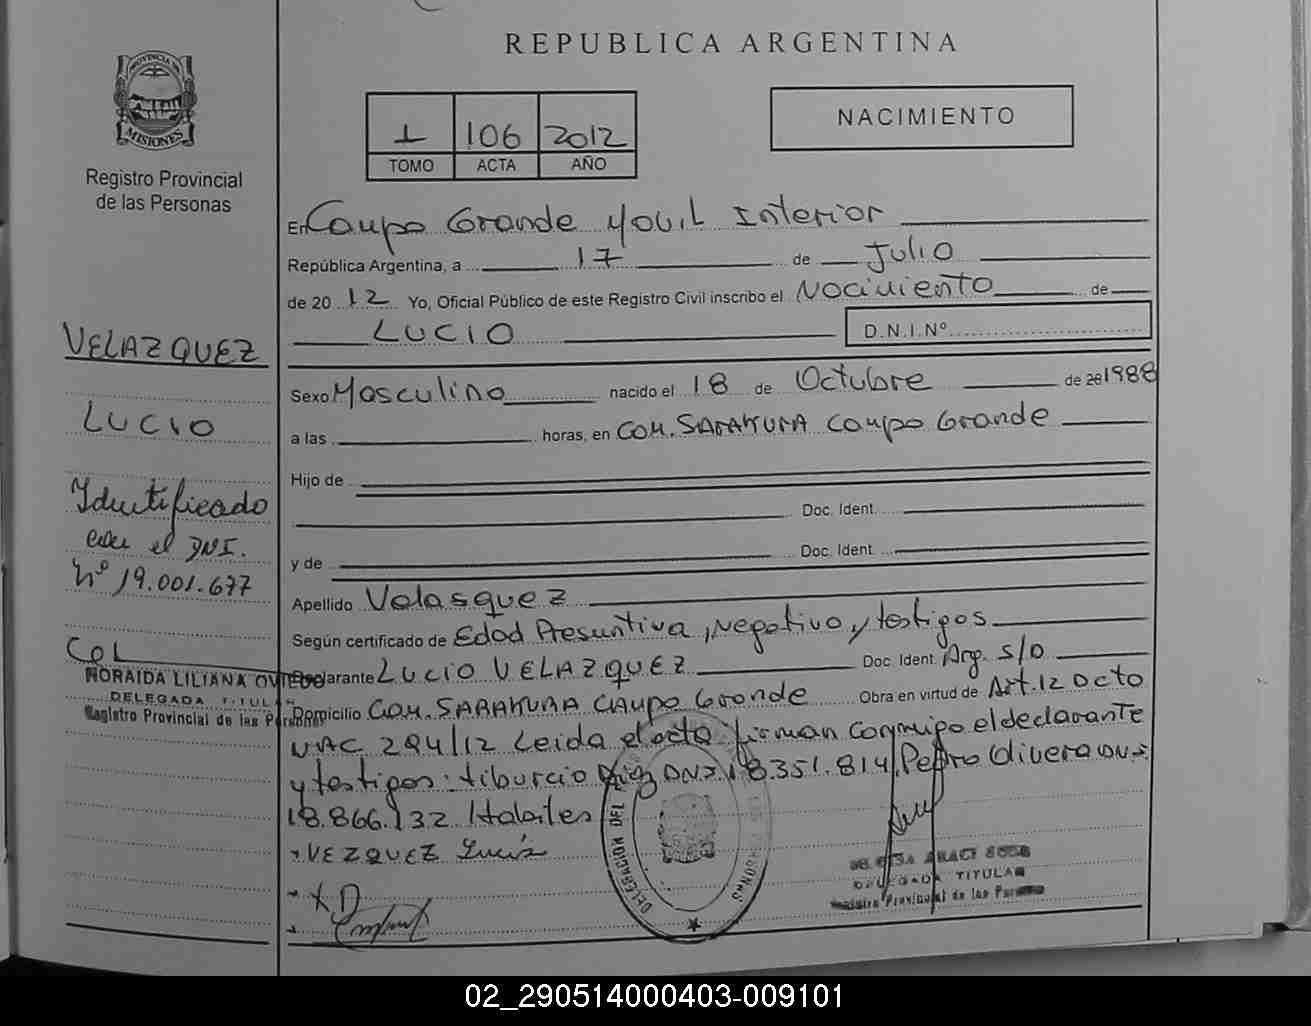 REPUBLICA ARGENTINA
PROVINCIA DE
MISIONES
Registro Provincial
de las Personas
1 106 2012
TOMO ACTA AÑO
NACIMIENTO
En Campo Grande Movil Interior
República Argentina, a 17 de Julio
de 20 12 Yo, Oficial Público de este Registro Civil inscribo el Nacimiento de
LUCIO D.N.I.Nº
VELAZQUEZ
LUCIO
Identificado
con el DNI.
Nº 19.001.677
NORAIDA LILIANA OVIEDO
DELEGADA TITULAR
Registro Provincial de las Personas
Sexo Masculino nacido el 18 de Octubre de 20 1988
a las horas, en COM. SARAKURA Campo Grande
Hijo de
Doc. Ident.
y de Doc. Ident.
Apellido Velasquez
Según certificado de Edad Presuntiva, Negativo, y testigos
Declarante LUCIO VELAZQUEZ Doc. Ident. Arg. S/D
Domicilio COM. SARAKURA CAmpo Grande Obra en virtud de Art. 12 Dcto
NAC 294/12 Leida el acta firman conmigo el declarante
y testigos: tiburcio DNI 18.351.814, Pedro Olivera DNI
18.866.132 Habiles
VEZQUEZ Lucis
DELEGACION DEL
PERSONAS
DELEGADA TITULAR
Registro Provincial de las Personas
02_290514000403-009101